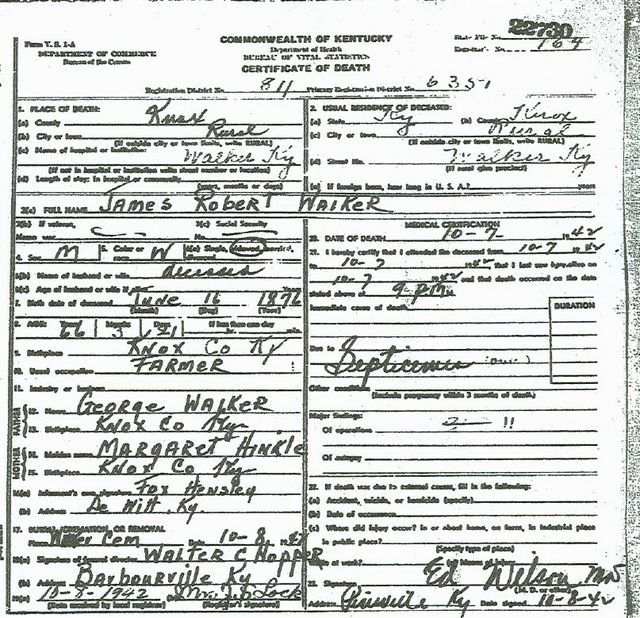 22730
Form V. S. 1-A
COMMONWEALTH OF KENTUCKY
State File No.
DEPARTMENT OF COMMERCE
Department of Health
Registrar's No. 164
Bureau of the Census
BUREAU OF VITAL STATISTICS
CERTIFICATE OF DEATH
Registration District No. 811 Primary Registration District No. 6351
1. PLACE OF DEATH:
(a) County Knox
(b) City or town Rural
(If outside city or town limits, write RURAL)
(c) Name of hospital or institution: Walker Ky
(If not in hospital or institution write street number or location)
(d) Length of stay: In hospital or community
(years, months or days)
2. USUAL RESIDENCE OF DECEASED:
(a) State Ky (b) County Knox
(c) City or town Rural
(If outside city or town limits, write RURAL)
(d) Street No. Walker Ky
(If rural give precinct)
(e) If foreign born, how long in U. S. A.? years
3(a) FULL NAME JAMES ROBERT WALKER
3(b) If veteran, 3(c) Social Security
Name war No.
4. Sex M 5. Color or race W 6(a) Single, widowed, married,
6(b) Name of husband or wife
6(c) Age of husband or wife if alive
7. Birth date of deceased June 16 1876
(Month) (Day) (Year)
8. AGE: Years Months Days If less than one day
66 3 21
9. Birthplace KNOX CO KY
10. Usual occupation FARMER
11. Industry or business
FATHER
12. Name GEORGE WALKER
13. Birthplace KNOX CO Ky
MOTHER
14. Maiden name MARGARET HINKLE
15. Birthplace KNOX CO Ky
16(a) Informant's own signature Fox Hensley
(b) Address De Witt Ky
17. BURIAL, CREMATION, OR REMOVAL
Place Walker Cem Date 10-8 1942
18(a) Signature of funeral director WALTER C HOPPER
(b) Address Barbourville Ky
19(a) 10-8-1942
(Date received by local registrar) (Registrar's signature)
MEDICAL CERTIFICATION
20. DATE OF DEATH 10-7 1942
21. I hereby certify that I attended the deceased from 10-7 1942
to 10-7 1942, that I last saw h alive on
10-7 1942 and that death occurred on the date
stated above at 9 P.M.
Immediate cause of death
DURATION
Due to Septicemia
Other conditions
(Include pregnancy within 3 months of death)
Major findings:
Of operations
Of autopsy
22. If death was due to external causes, fill in the following:
(a) Accident, suicide, or homicide (specify)
(b) Date of occurrence
(c) Where did injury occur? In or about home, on farm, in industrial place
in public place?
(Specify type of place)
23. Signature Ed Wilson MD
(M. D. or other)
Address Pineville Ky Date signed 10-8-42